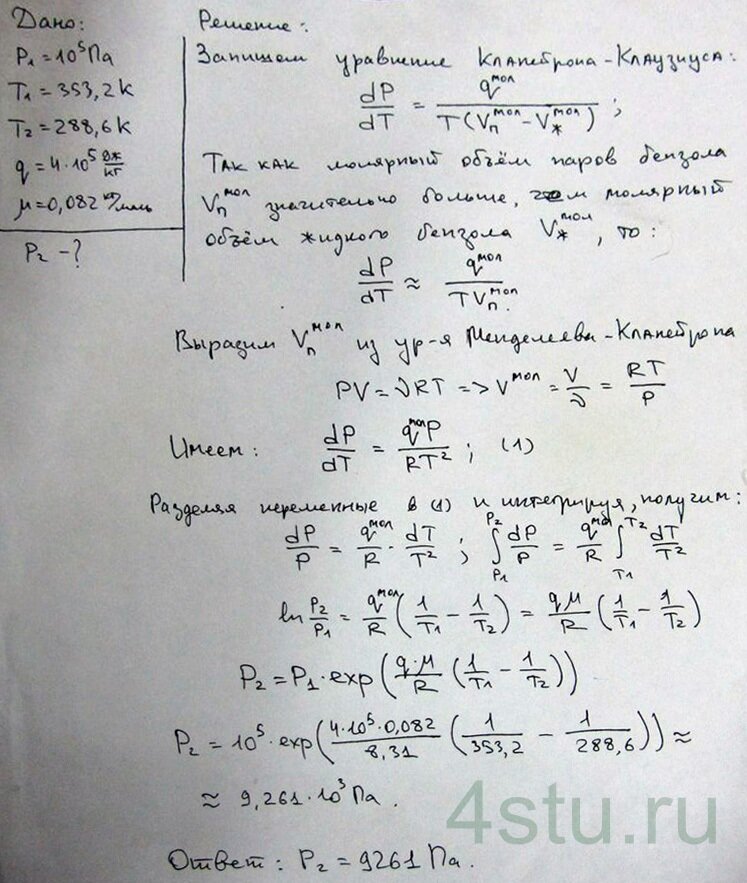 Дано:
P₁ = 10⁵ Па
T₁ = 353,2 К
T₂ = 288,6 К
q = 4·10⁵ Дж/кг
μ = 0,082 кг/моль
P₂ - ?
Решение:
Запишем уравнение Клапейрона-Клаузиуса:
dP/dT = q^мол / T(Vп^мол - Vж^мол) ;
Так как молярный объём паров бензола
Vп^мол значительно больше, чем молярный
объём жидкого бензола Vж^мол, то:
dP/dT ≈ q^мол / TVп^мол.
Выразим Vп^мол из ур-я Менделеева-Клапейрона
PV = νRT => V^мол = V/ν = RT/P
Имеем: dP/dT = q^мол P / RT² ; (1)
Разделяя переменные в (1) и интегрируя, получим:
dP/P = q^мол/R · dT/T² ; ∫_P₁^P₂ dP/P = q^мол/R ∫_T₁^T₂ dT/T²
ln P₂/P₁ = q^мол/R (1/T₁ - 1/T₂) = qμ/R (1/T₁ - 1/T₂)
P₂ = P₁·exp(q·μ/R (1/T₁ - 1/T₂))
P₂ = 10⁵·exp(4·10⁵·0,082/8,31 (1/353,2 - 1/288,6)) ≈
≈ 9,261·10³ Па.
4stu.ru
Ответ: P₂ = 9261 Па.